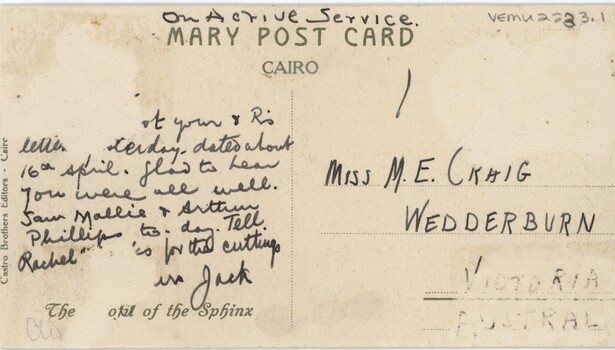 On Active Service.
VEMU2233.1
MARY POST CARD
CAIRO
ot your & R's
lette. terday. dated about
16th april. Glad to hear
you were all well.
Saw Mallie & Arthur
Phillips to-day. Tell
Rachel for the cuttings
Jack
The of the Sphinx
Castro Brothers Editors - Caire
MISS M.E. CRAIG
WEDDERBURN
VICTORIA
AUSTRAL